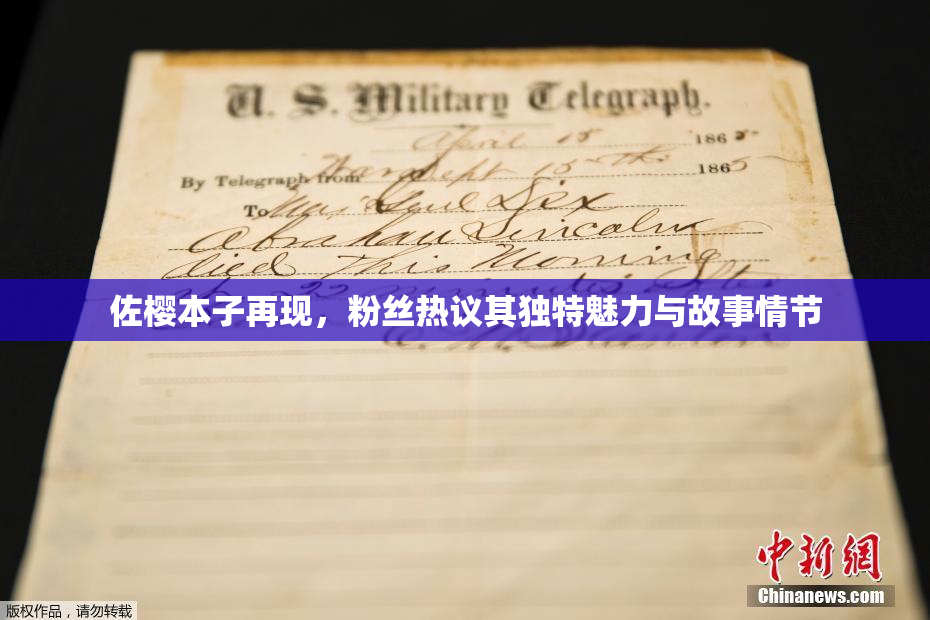 U. S. Military Telegraph.
April 15 1865
By Telegraph from War Dept 15th 1865
To Maj Genl Dix
Abraham Lincoln
died This Morning
at 22 minutes after
佐樱本子再现，粉丝热议其独特魅力与故事情节
E. M. Stanton
中新网
Chinanews.com
版权作品，请勿转载